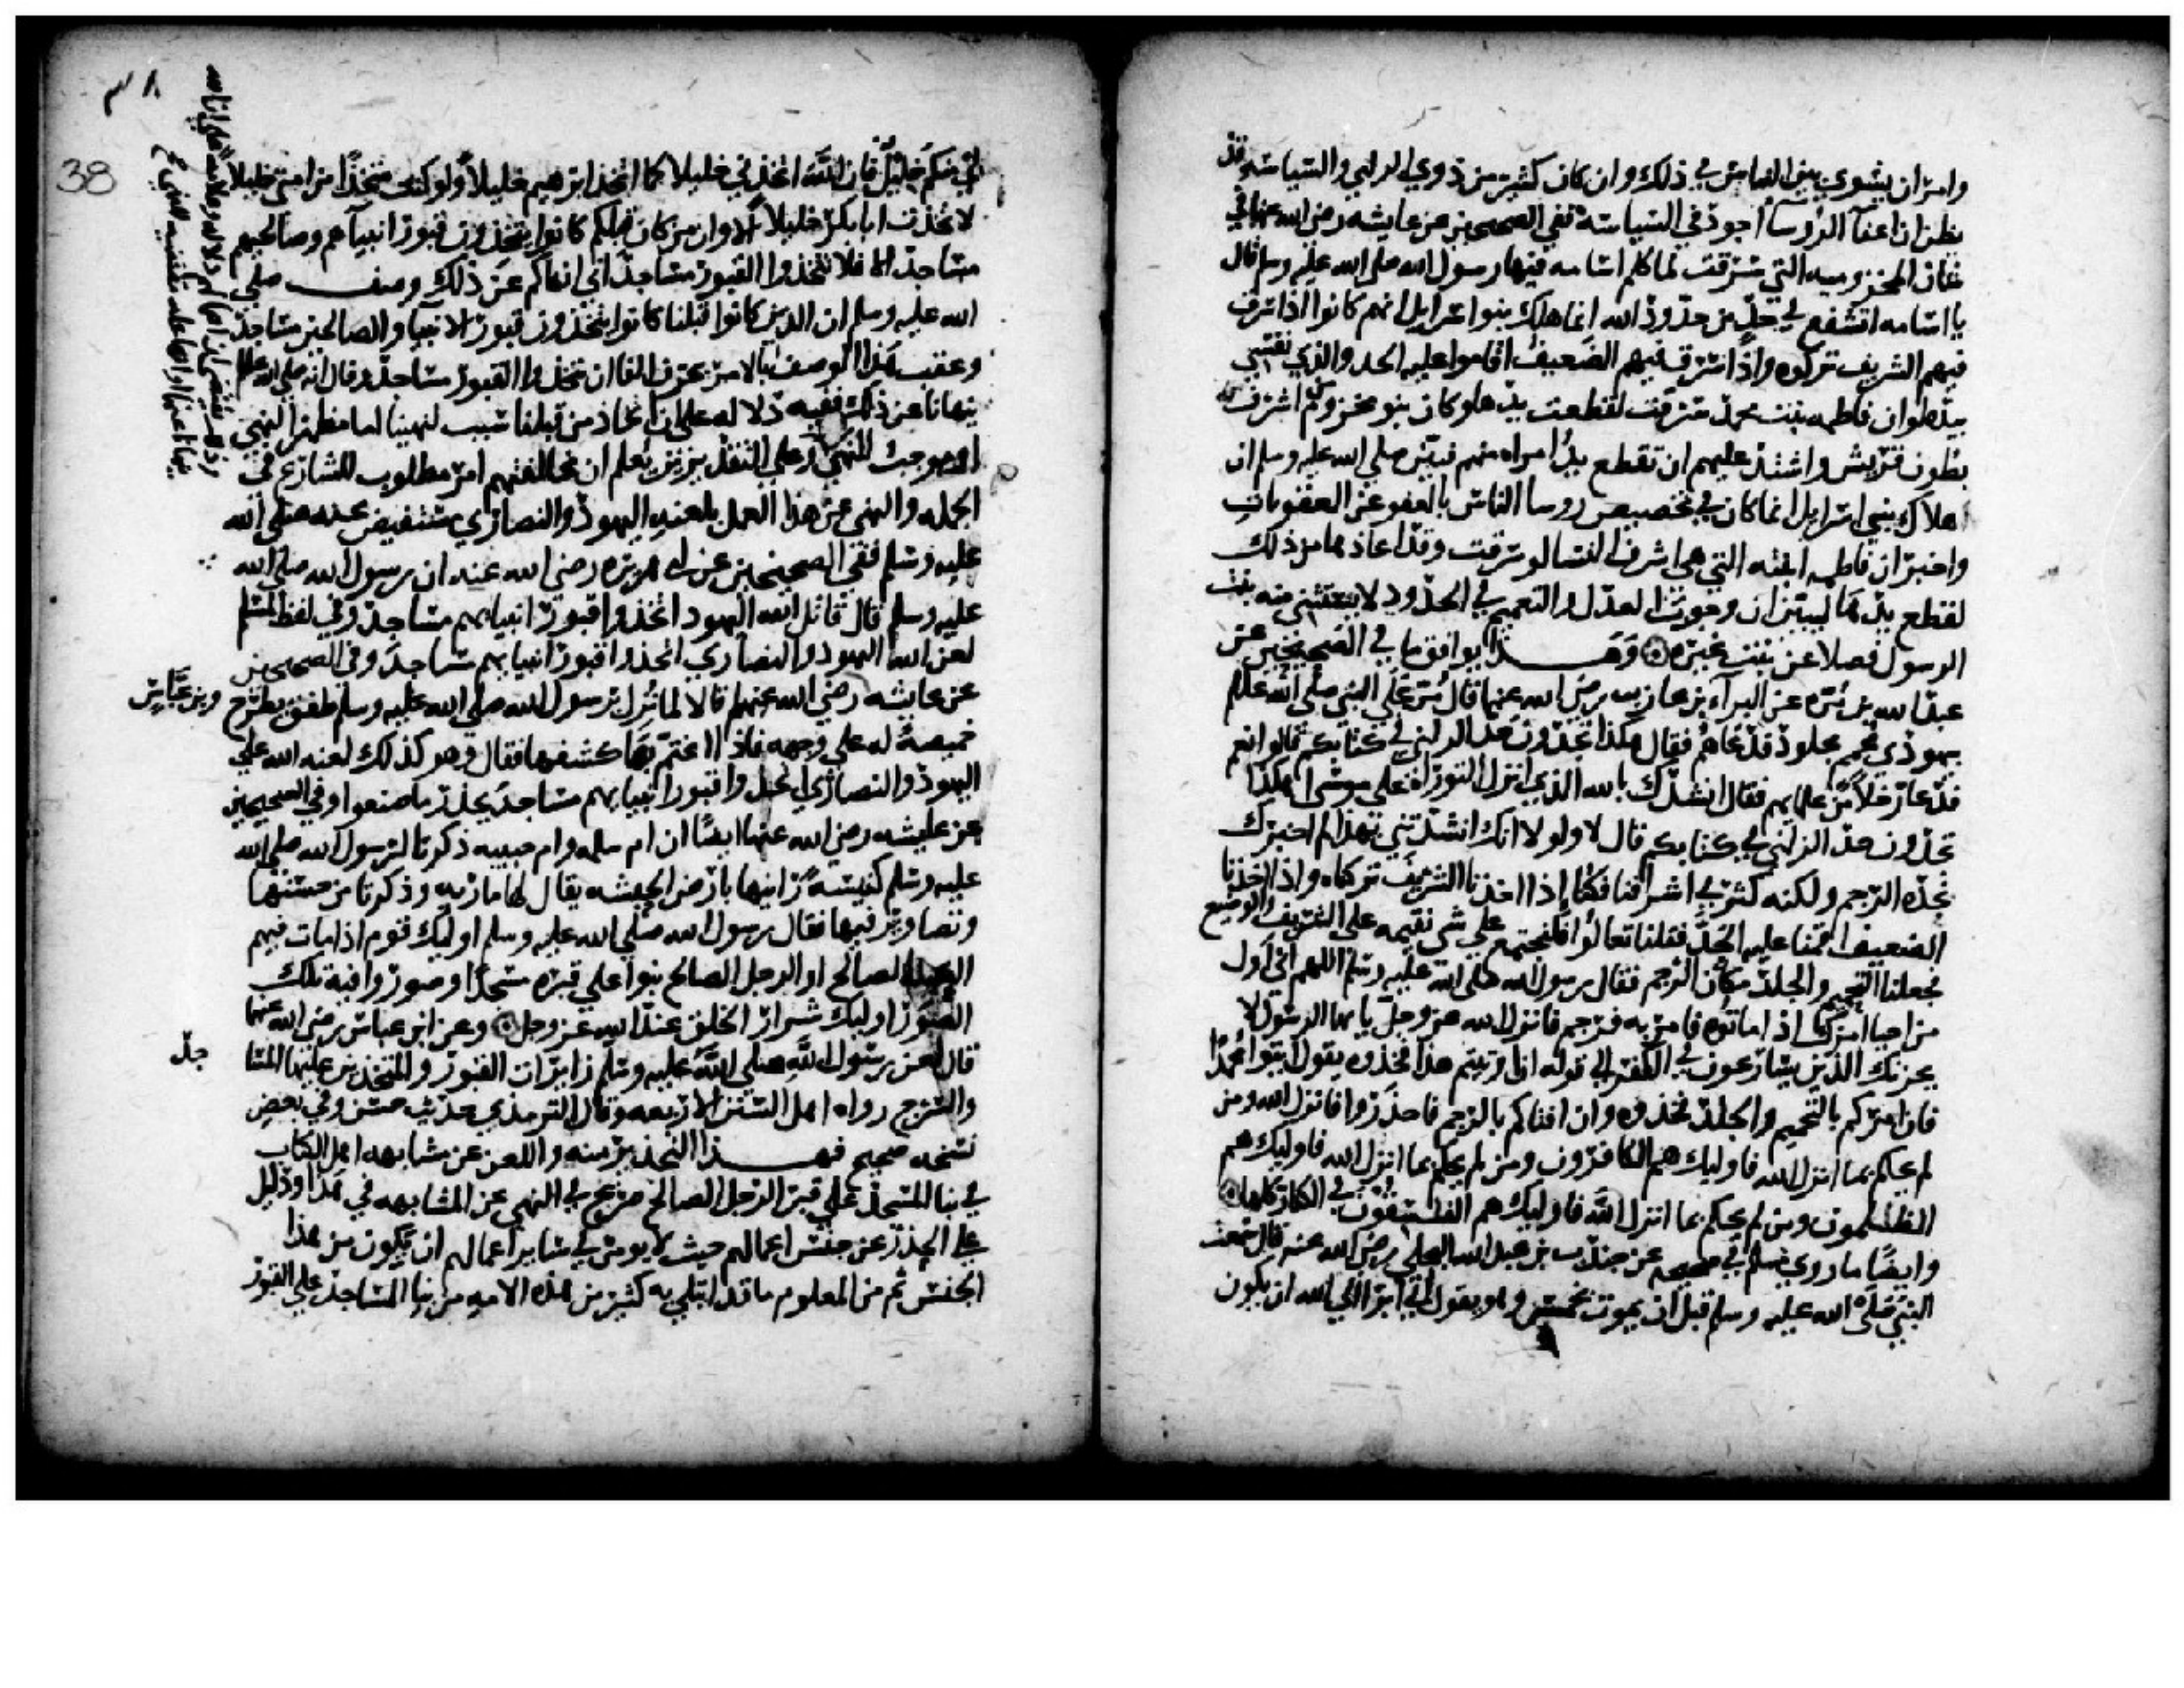 وامر ان يسوى بين الناس في ذلك وان كان كثير من ذوي الراي والسياسه قد
يظن ان اعفآ الروسآ اجود في السياسة ففي الصحيحين عن عايشه رضي الله عنها في
شان المخزوميه التي سرقت لما كلم اسامه فيها رسول الله صلى الله عليه وسلم قال
يا اسامه اتشفع في حد من حدود الله انما هلك بنوا اسرايل انهم كانوا اذا سرق
فيهم الشريف تركوه واذا سرق فيهم الضعيف اقاموا عليه الحد والذي نفسي
بيده لو ان فاطمه بنت محمد سرقت لقطعت يدها وكان بنو مخزوم من اشرف
بطون قريش واشتد عليهم ان تقطع يد امراه منهم فبين صلى الله عليه وسلم ان
هلاك بني اسرايل انما كان في تخصيص روسا الناس بالعفو عن العقوبات
واخبر ان فاطمه ابنته التي هي اشرف النسا لو سرقت وقد اعاذها من ذلك
لقطع يدها ليبين ان وجوب العدل والتعميم في الحدود لا يستثنى منه بنت
الرسول فضلا عن بنت غيره وهذا يوافق ما في الصحيحين عن
عبد الله بن مره عن البرآء بن عازب رضي الله عنهما قال مر على النبي صلى الله عليه وسلم
يهودي محمم مجلود فدعاهم فقال هكذا تجدون حد الزاني في كتابكم قالوا نعم
فدعا رجلا من علمايهم فقال انشدك بالله الذي انزل التوراة على موسى اهكذا
تجدون حد الزاني في كتابكم قال لا ولولا انك انشدتني بهذا لم اخبرك
نجده الرجم ولكنه كثر في اشرافنا فكنا اذا اخذنا الشريف تركناه واذا اخذنا
الضعيف اقمنا عليه الحد فقلنا تعالوا فلنجتمع على شي نقيمه على الشريف والوضيع
فجعلنا التحميم والجلد مكان الرجم فقال رسول الله صلى الله عليه وسلم اللهم اني اول
من احيا امرك اذ اماتوه فامر به فرجم فانزل الله عز وجل يا يها الرسول لا
يحزنك الذين يسارعون في الكفر الى قوله ان اوتيتم هذا فخذوه يقول ايتوا محمدا
فان امركم بالتحميم والجلد فخذوه وان افتاكم بالرجم فاحذروا فانزل الله ومن
لم يحكم بما انزل الله فاوليك هم الكافرون ومن لم يحكم بما انزل الله فاوليك هم
الظلمون ومن لم يحكم بما انزل الله فاوليك هم الفسقون في الكفار كلها
وايضا ما روى مسلم في صحيحه عن جندب بن عبد الله البجلي رضي الله عنه قال سمعت
النبي صلى الله عليه وسلم قبل ان يموت بخمس وهو يقول اني ابرا الى الله ان يكون
٣٨
38
لي منكم خليل فان الله اتخذني خليلا كما اتخذ ابرهيم خليلا ولو كنت متخذا من امتي خليلا
لاتخذت ابا بكر خليلا الا وان من كان قبلكم كانوا يتخذون قبور انبيآهم وصالحيهم
مساجد الا فلا تتخذوا القبور مساجد اني انهاكم عن ذلك وصف صلى
الله عليه وسلم ان الذين كانوا قبلنا كانوا يتخذون قبور الانبيآ والصالحين مساجد
وعقب هذا الوصف بالامر بحرف الفا ان تتخذوا القبور مساجد وقال انه صلى الله عليه وسلم
ينهانا عن ذلك ففيه دلاله على ان اتخاذ من قبلنا سبب لنهينا اما مظهر للنهي
او موجب للنهي وعلى التقديرين يعلم ان مخالفتهم امر مطلوب للشارع في
الجمله والنهي عن هذا العمل بلعنه اليهود والنصارى مستفيض عنه صلى الله
عليه وسلم ففي الصحيحين عن ابي هريره رضي الله عنه ان رسول الله صلى الله
عليه وسلم قال قاتل الله اليهود اتخذوا قبور انبيايهم مساجد وفي لفظ لمسلم
لعن الله اليهود والنصارى اتخذوا قبور انبيايهم مساجد وفي الصحيحين
عن عايشه رضي الله عنهم قالا لما نزل برسول الله صلى الله عليه وسلم طفق يطرح
وبن عباس
خميصة له على وجهه فاذا اغتم بها كشفها فقال وهو كذلك لعنه الله على
اليهود والنصارى اتخذوا قبور انبيايهم مساجد يحذر ما صنعوا وفي الصحيحين
عن عايشه رضي الله عنها ايضا ان ام سلمه وام حبيبه ذكرتا لرسول الله صلى الله
عليه وسلم كنيسة راينها بارض الحبشه يقال لها ماريه وذكرتا من حسنها
وتصاوير فيها فقال رسول الله صلى الله عليه وسلم اوليك قوم اذا مات فيهم
العبد الصالح او الرجل الصالح بنوا على قبره مسجدا وصوروا فيه تلك
الصور اوليك شرار الخلق عند الله عز وجل وعن ابن عباس رضي الله عنهما
قال لعن رسول الله صلى الله عليه وسلم زايرات القبور والمتخذين عليها المسا
جد
والسرج رواه اهل السنن الاربعه وقال الترمذي حديث حسن وفي بعض
نسخه صحيح فهذا التحذير منه واللعن عن مشابهه اهل الكتاب
في بنا المسجد على قبر الرجل الصالح صريح في النهي عن المشابهه في هذا ودليل
على الحذر عن جنس اعمالهم حيث لا يومن في ساير اعمالهم ان يكون من هذا
الجنس ثم من المعلوم ما قد ابتلي به كثير من هذه الامه من بنا المساجد على القبور